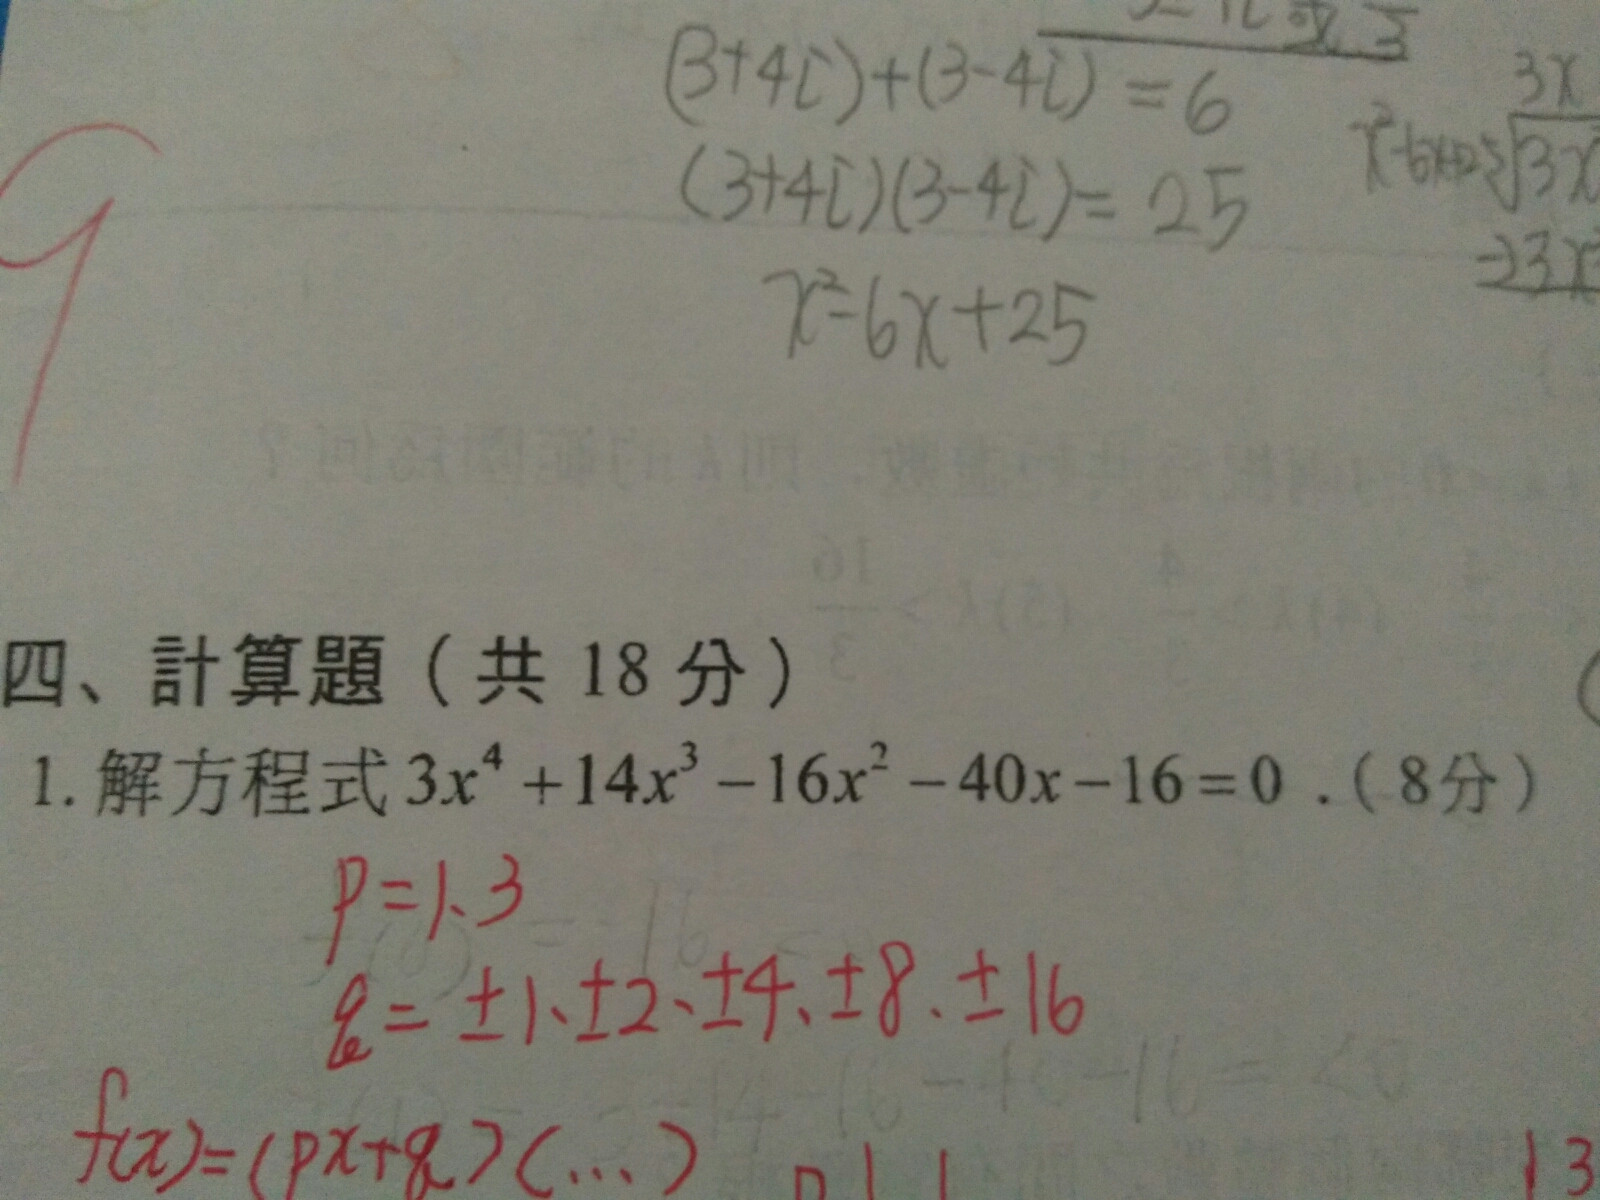 (3+4i)+(3-4i)=6
(3+4i)(3-4i)=25
x²-6x+25
3x
x²-6x+25 3x
-)3x
9
四、計算題（共 18 分）
1. 解方程式 3x⁴+14x³-16x²-40x-16=0．（8分）
p=1、3
q=±1、±2、±4、±8、±16
f(x)=(px+q)(...)
13